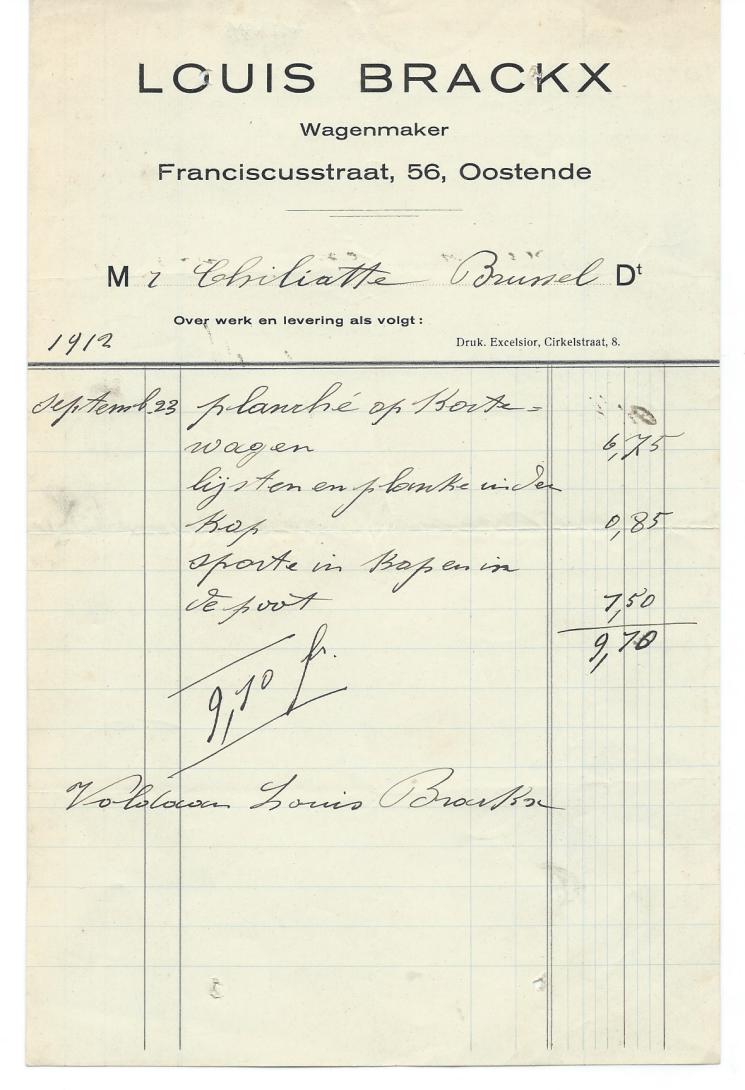 LOUIS BRACKX
Wagenmaker
Franciscusstraat, 56, Oostende
Mr Chiliatte Brussel Dt
Over werk en levering als volgt:
1912
Druk. Excelsior, Cirkelstraat, 8.
Septemb. 23 planché op Korte=
wagen 6,75
lijsten en planke in den
Kop 0,85
sporte in Kop en in
de poot 1,50
9,10
9,10 fr.
Voldaan Louis Brackx